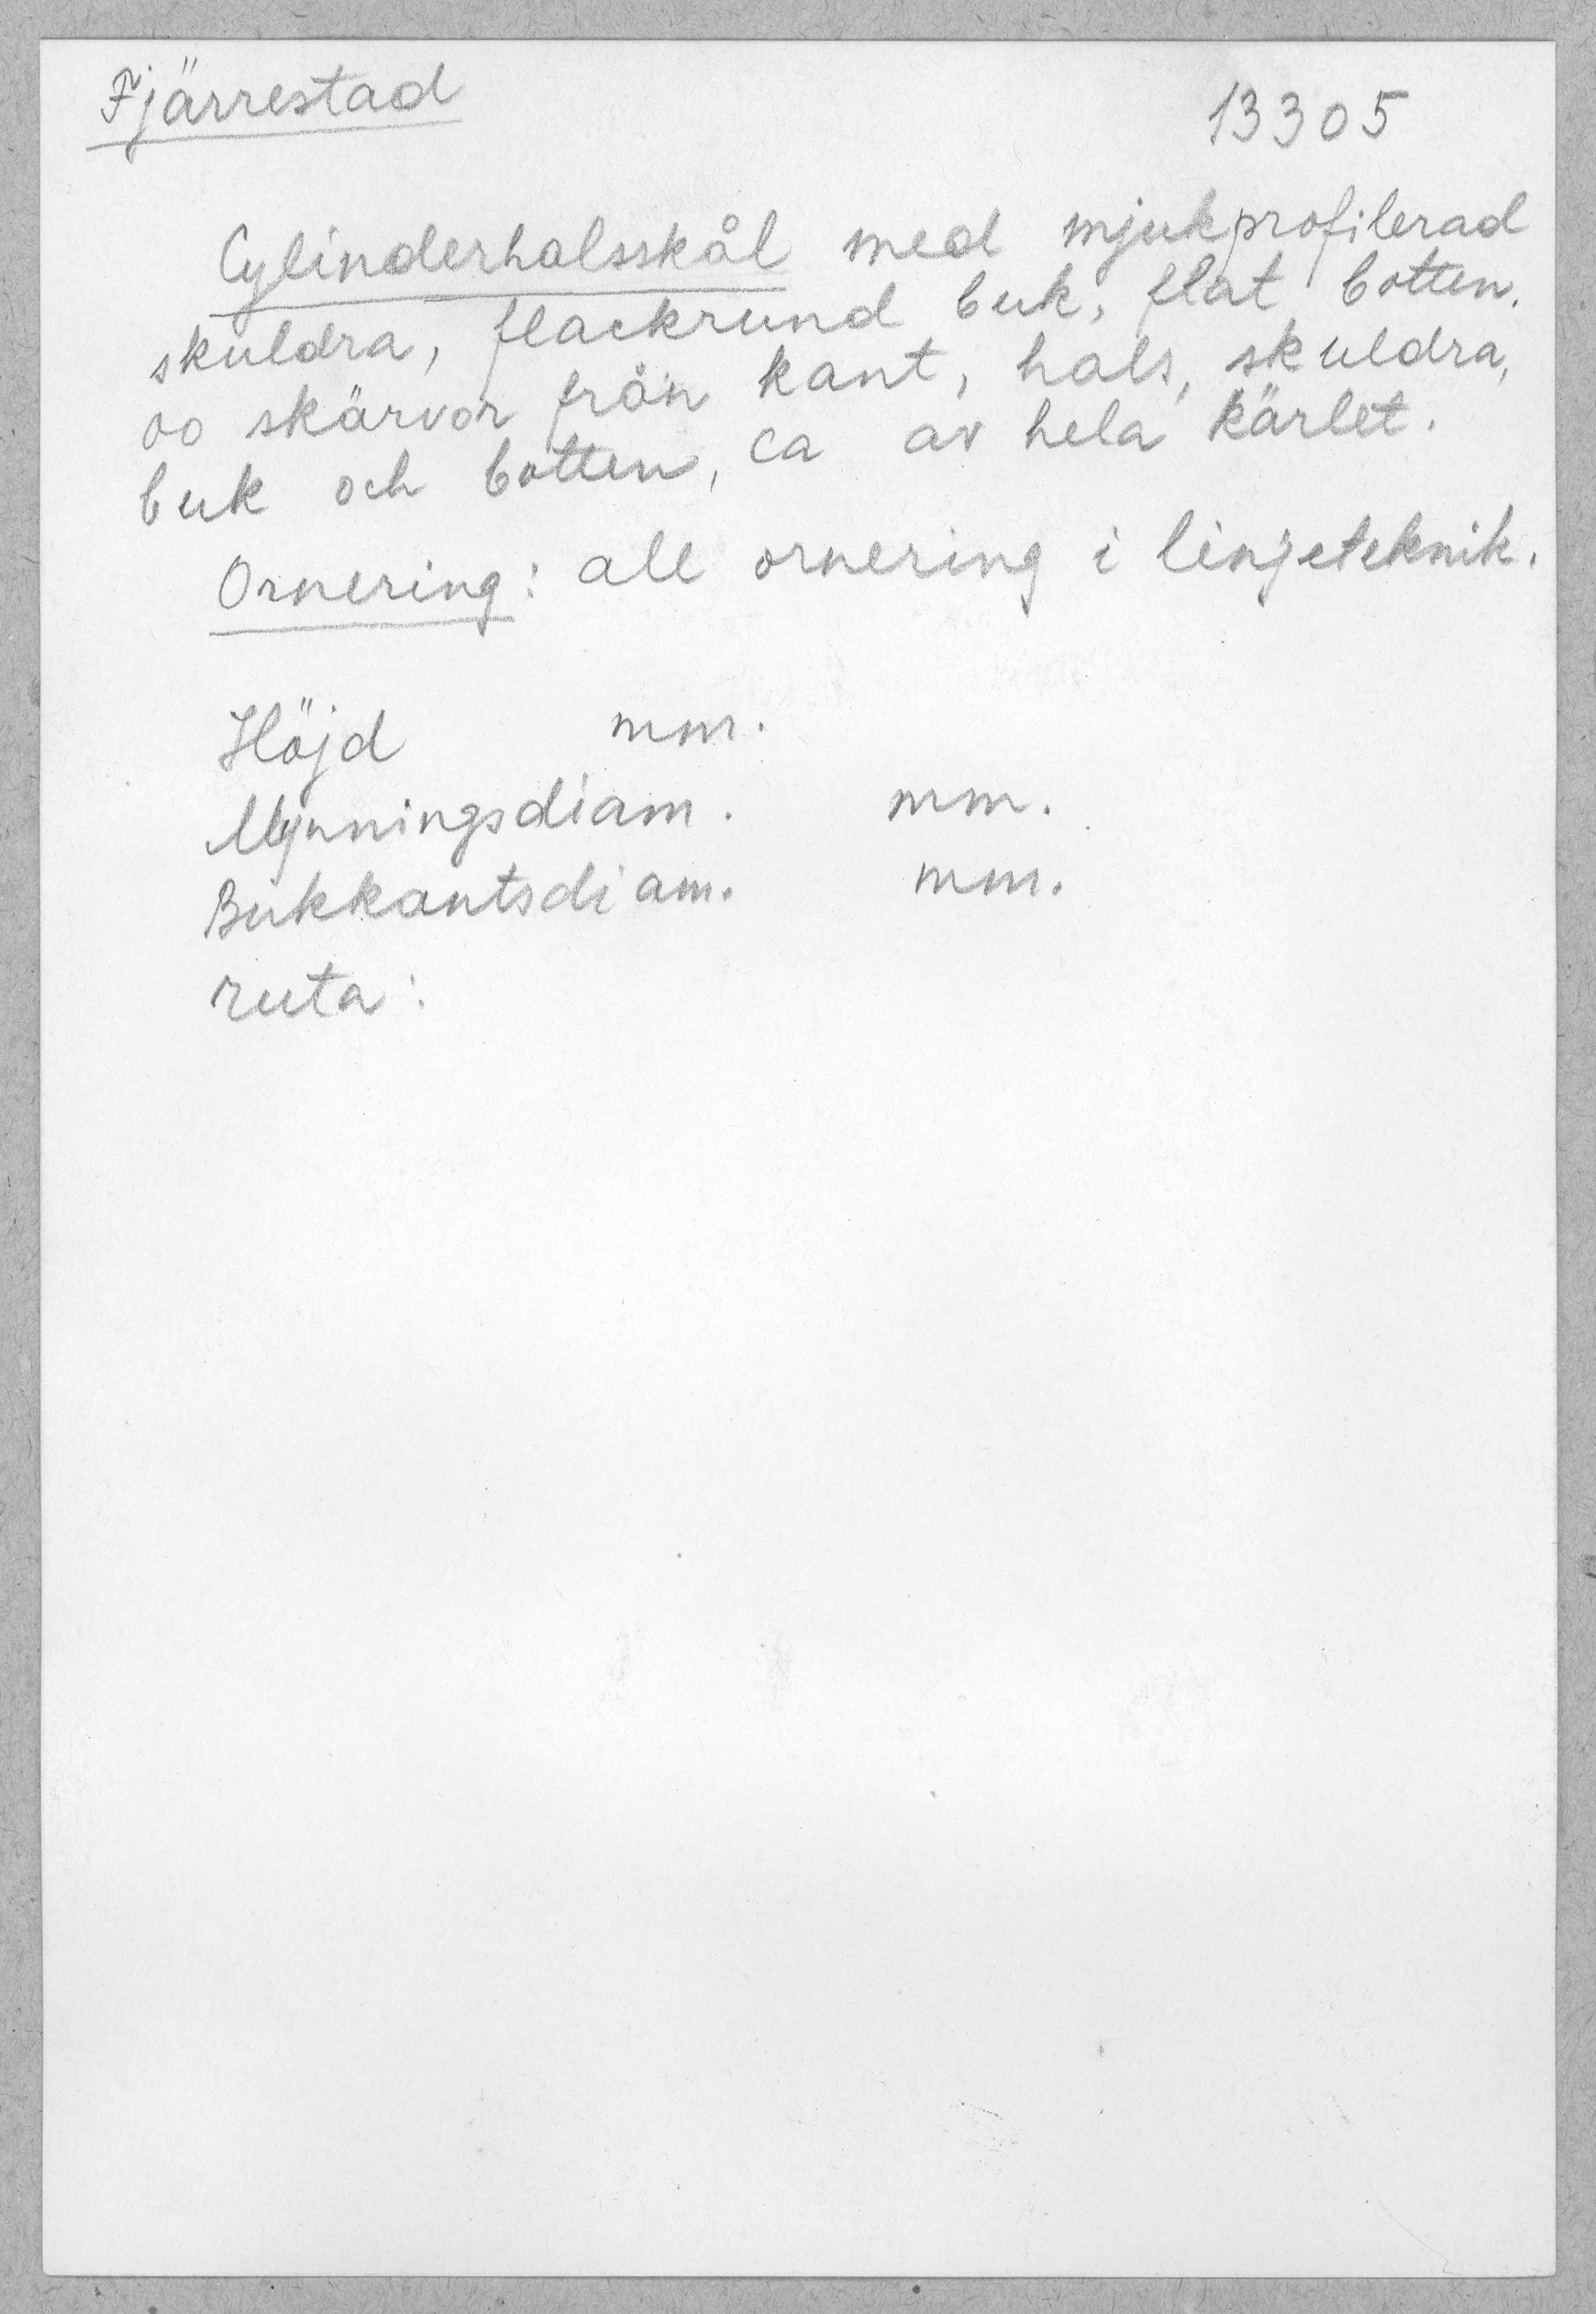 Fjärrestad
13305
Cylinderhalsskål med mjukprofilerad
skuldra, flackrund buk, flat botten.
oo skärvor från kant, hals, skuldra,
buk och botten, ca av hela kärlet.
Ornering: all ornering i linjeteknik.
Höjd mm.
Mynningsdiam. mm.
Bukkantsdiam. mm.
ruta: